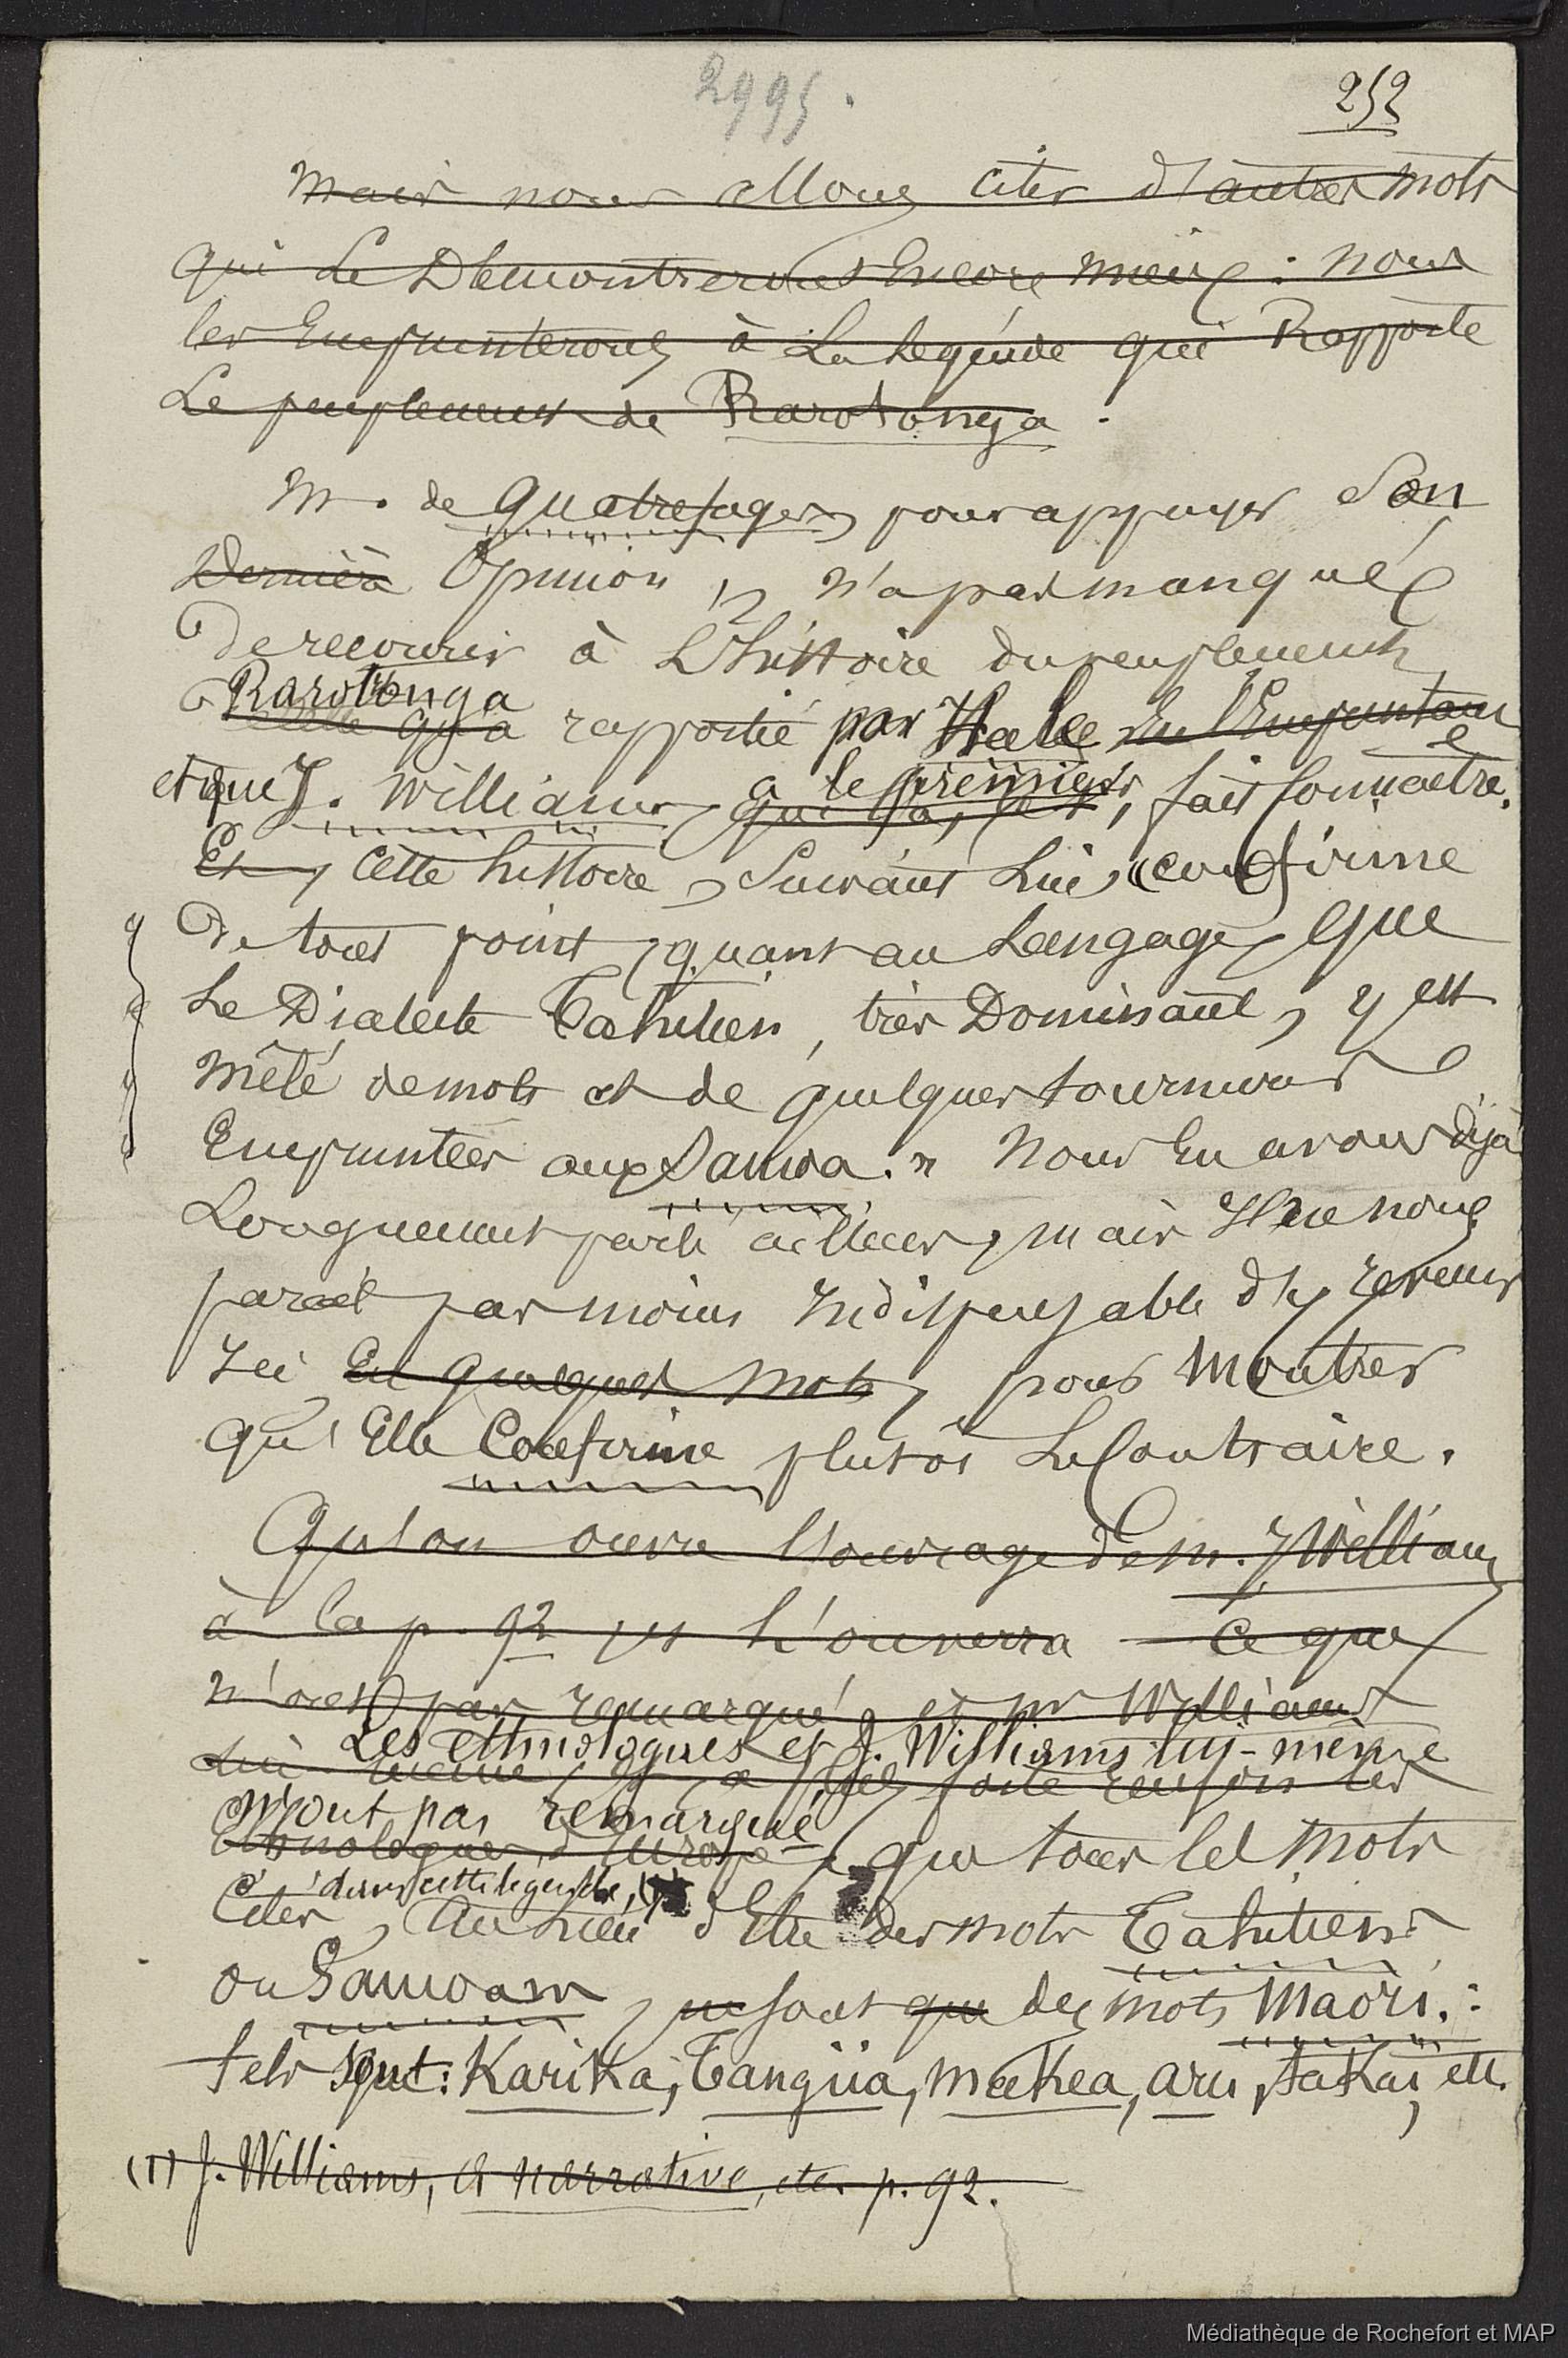 2995.
252
Mais nous allons citer d'autres mots
qui le Démontreront Encore mieux : nous
les Emprunterons à La Légende qui Rapporte
Le peuplement de Rarotonga.
M. de Quatrefages, pour appuyer Son
Dernière Opinion, n'a pas manqué
De recourir à L'histoire du peuplement
Rarotonga
qu'a rapporté par Hale En l'Empruntant
et que J. Williams, a le premier, fait Connaître.
qui l'a, le
Et, cette histoire, Suivant Lui, "confirme
De tout point, quant au Langage, que
Le Dialecte Tahitien, très Dominant, y est
mêlé de mots et de quelques tournures
Empruntées aux Samoa." Nous En avons déjà
Longuement parlé ailleurs, mais Il ne nous
parait pas moins Indispensable d'y revenir
Ici En quelques mots, pour Montrer
qu'Elle Confirme plutôt Le Contraire.
Qu'on ouvre l'ouvrage de M. J. Williams
à la p. 92 et l'on verra ce que
n'ont pas remarqué, et Mr Williams
Les ethnologues et J. Williams lui-même
lui-même,
n'ont pas remarqué
Ethnologues d'Europe, que tous les mots
dans cette légende, (1)
Cités, Au Lieu d'Etre des mots Tahitiens
ou Samoans, ne sont que des mots Maori. :
tels sont : Karika, Tangiia, Makea, aru, takai, etc.
(1) J. Williams, A narrative, etc. p. 92.
Médiathèque de Rochefort et MAP